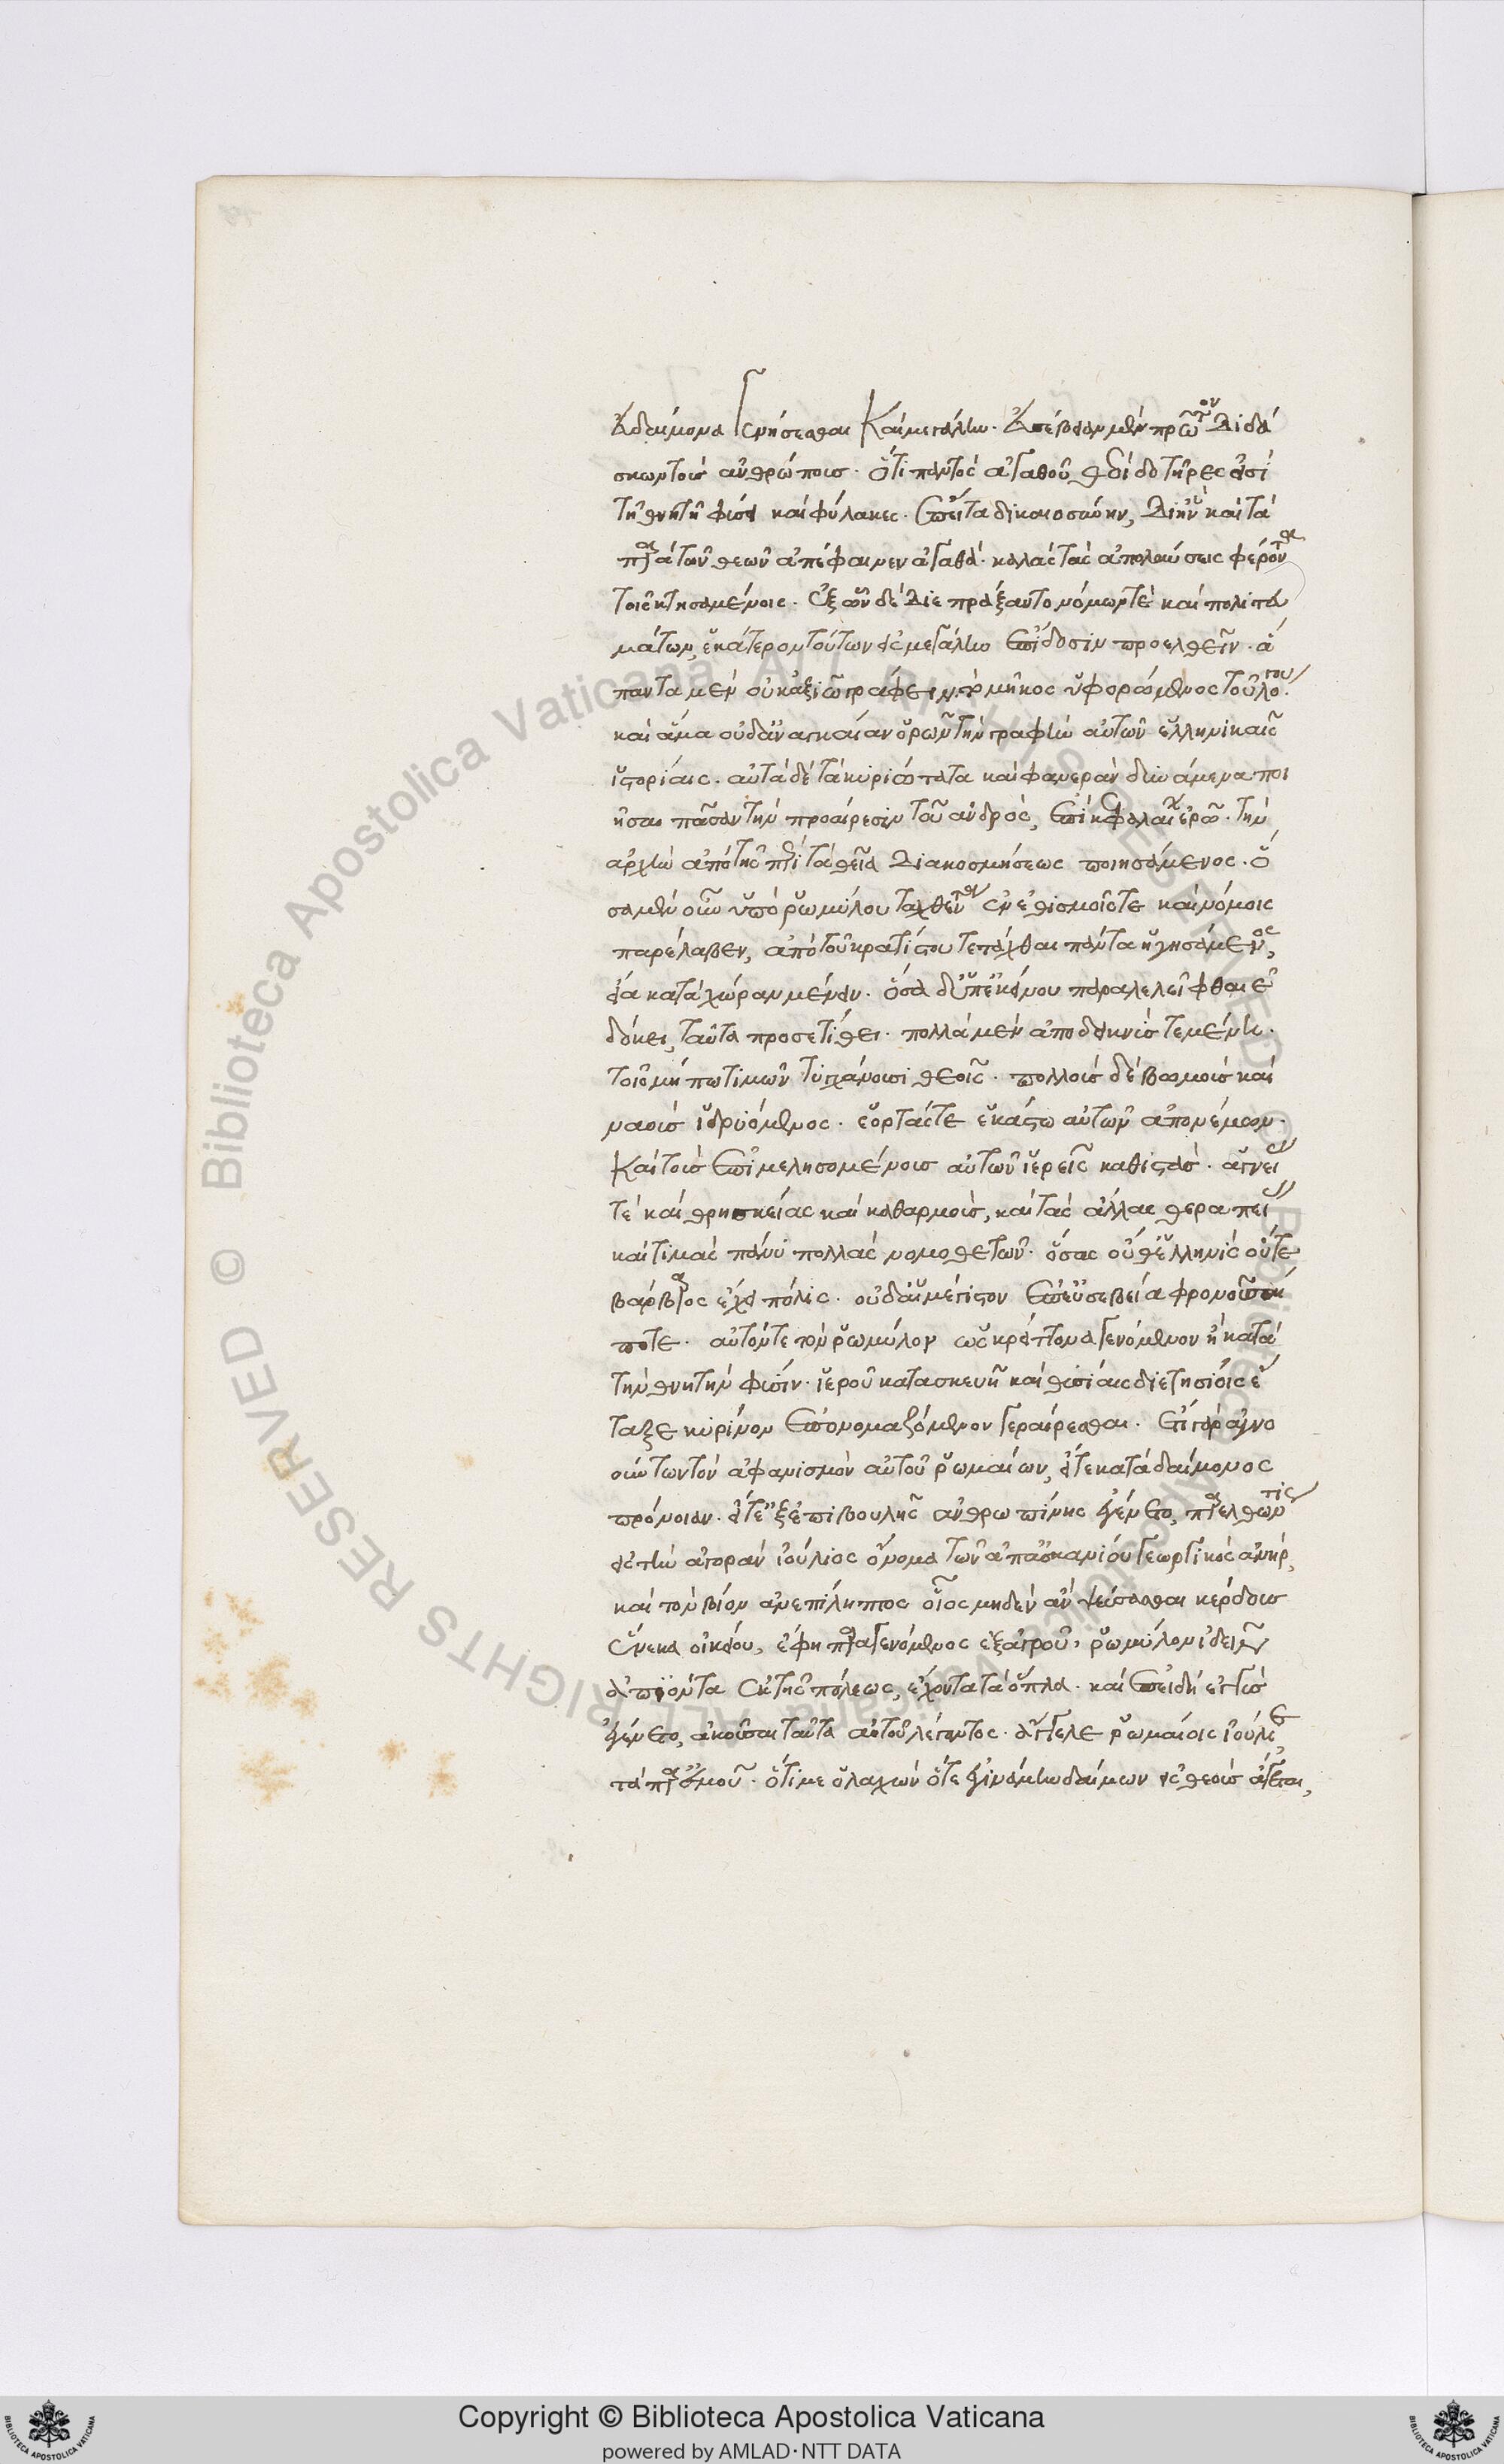 εὐδαίμονα γενήσεσθαι καὶ μεγάλην. εὐσέβειαν μὲν πρῶτον διδά
σκων τοῖς ἀνθρώποις. ὅτι παντὸς ἀγαθοῦ θεοὶ δοτῆρες εἰσὶ
τῇ θνητῇ φύσει καὶ φύλακες. ἔπειτα δικαιοσύνην, δι' ἣν καὶ τὰ
παρὰ τῶν θεῶν ἀπέφαινεν ἀγαθὰ. καλὰς τὰς ἀπολαύσεις φέροντα
τοῖς κτησαμένοις. ἐξ ὧν δὲ διεπράξαντο νόμων τὲ καὶ πολιτευ
μάτων, ἑκάτερον τούτων εἰς μεγάλην ἐπίδοσιν προελθεῖν. ἅ
παντα μὲν οὐκ ἀξιῶ γράφειν. τὸ μῆκος ὑφορώμενος τοῦ λόγου.
καὶ ἅμα οὐδ' ἀναγκαίαν ὁρῶν τὴν γραφὴν αὐτῶν ἑλληνικαῖς
ἱστορίαις. αὐτὰ δὲ τὰ κυριώτατα καὶ φανερὰν δυνάμενα ποι
ῆσαι πᾶσαν τὴν προαίρεσιν τοῦ ἀνδρός, ἐπὶ κεφαλαίων ἐρῶ. τὴν
ἀρχὴν ἀπὸ τῆς περὶ τὰ θεῖα διακοσμήσεως ποιησάμενος. ὅ
σα μὲν οὖν ὑπὸ ῥωμύλου ταχθέντα ἐν ἐθισμοῖς τε καὶ νόμοις
παρέλαβεν, ἀπὸ τοῦ κρατίστου τετάχθαι πάντα ἡγησάμενος,
εἴα κατὰ χώραν μένειν. ὅσα δ' ὑπ' ἐκείνου παραλελεῖφθαι ἐ
δόκει, ταῦτα προσετίθει. πολλὰ μὲν ἀποδεικνὺς τεμένη.
τοῖς μήπω τιμῶν τυγχάνουσι θεοῖς. πολλοὺς δὲ βωμοὺς καὶ
ναοὺς ἱδρυόμενος. ἑορτάς τε ἑκάστῳ αὐτῶν ἀπονέμων.
καὶ τοὺς ἐπιμελησομένους αὐτῶν ἱερεῖς καθιστάς. ἁγνείας
τὲ καὶ θρησκείας καὶ καθαρμοὺς, καὶ τὰς ἄλλας θεραπείας
καὶ τιμὰς πάνυ πολλὰς νομοθετῶν. ὅσας οὔθ' ἑλληνὶς οὔτε
βάρβαρος ἔχει πόλις. οὐδ' αἱ μέγιστον ἐπ' εὐσεβείᾳ φρονοῦσαί
ποτε. αὐτόν τε τὸν ῥωμύλον ὡς κρείττονα γενόμενον ἢ κατὰ
τὴν θνητὴν φύσιν. ἱεροῦ κατασκευῇ καὶ θυσίαις διετησίοις ἔ
ταξε κυρίνον ἐπονομαζόμενον γεραίρεσθαι. ἔτι γὰρ ἀγνο
ούντων τὸν ἀφανισμὸν αὐτοῦ ῥωμαίων, εἴτε κατὰ δαίμονος
πρόνοιαν. εἴτε ἐξ ἐπιβουλῆς ἀνθρωπίνης ἐγένετο, παρελθών τις
εἰς τὴν ἀγορὰν ἰούλιος ὄνομα τῶν ἀπ' ἀσκανίου γεωργικὸς ἀνήρ,
καὶ τὸν βίον ἀνεπίληπτος οἷος μηδὲν ἂν ψεύσασθαι κέρδους
ἕνεκα οἰκείου, ἔφη παραγενόμενος ἐξ ἀγροῦ, ῥωμύλον ἰδεῖν
ἀπιόντα ἐκ τῆς πόλεως, ἔχοντα τὰ ὅπλα. καὶ ἐπειδὴ ἐγγὺς
ἐγένετο, ἀκοῦσαι ταῦτα αὐτοῦ λέγοντος. ἄγγελε ῥωμαίοις ἰούλιε,
τὰ παρ' ἐμοῦ. ὅτι με ὁ λαχὼν ὅτε ἐγινόμην δαίμων εἰς θεοὺς ἄγεται,